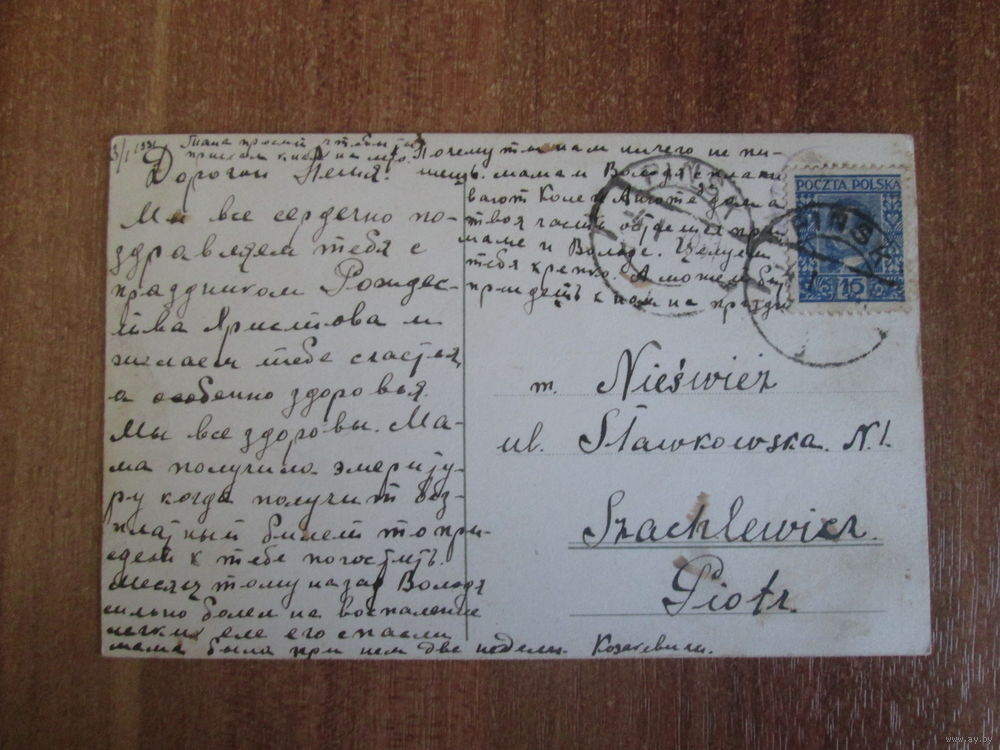 3/I 1931
прост чтобы
приехал к нам на лето.
Дорогой Петя!
Мы все сердечно по-
здравляем тебя с
праздником Рождес-
тва Христова и
желаем тебе счастья
а особенно здоровья.
Мы все здоровы. Ма-
ма получила эмериту-
ру когда получит без-
платный билет то при-
едет к тебе погостить.
Месяц тому назад Володя
сильно болел на воспаление
легких еле его спасли
мама была при нем две недели. Козакевичи.
Почему ты нам ничего не пи-
шешь. мама и Володя
вают Коле и Анюте дома
твоя часть при
маме и Володе. Целуем
тебя крепко. А может бы
приедешь к нам на празд
POCZTA POLSKA
15
PIŃSK 1
PIŃSK 1
m. Nieśwież
ul. Sławkowska. N 1.
Szachlewicz.
Piotr.
www.ay.by